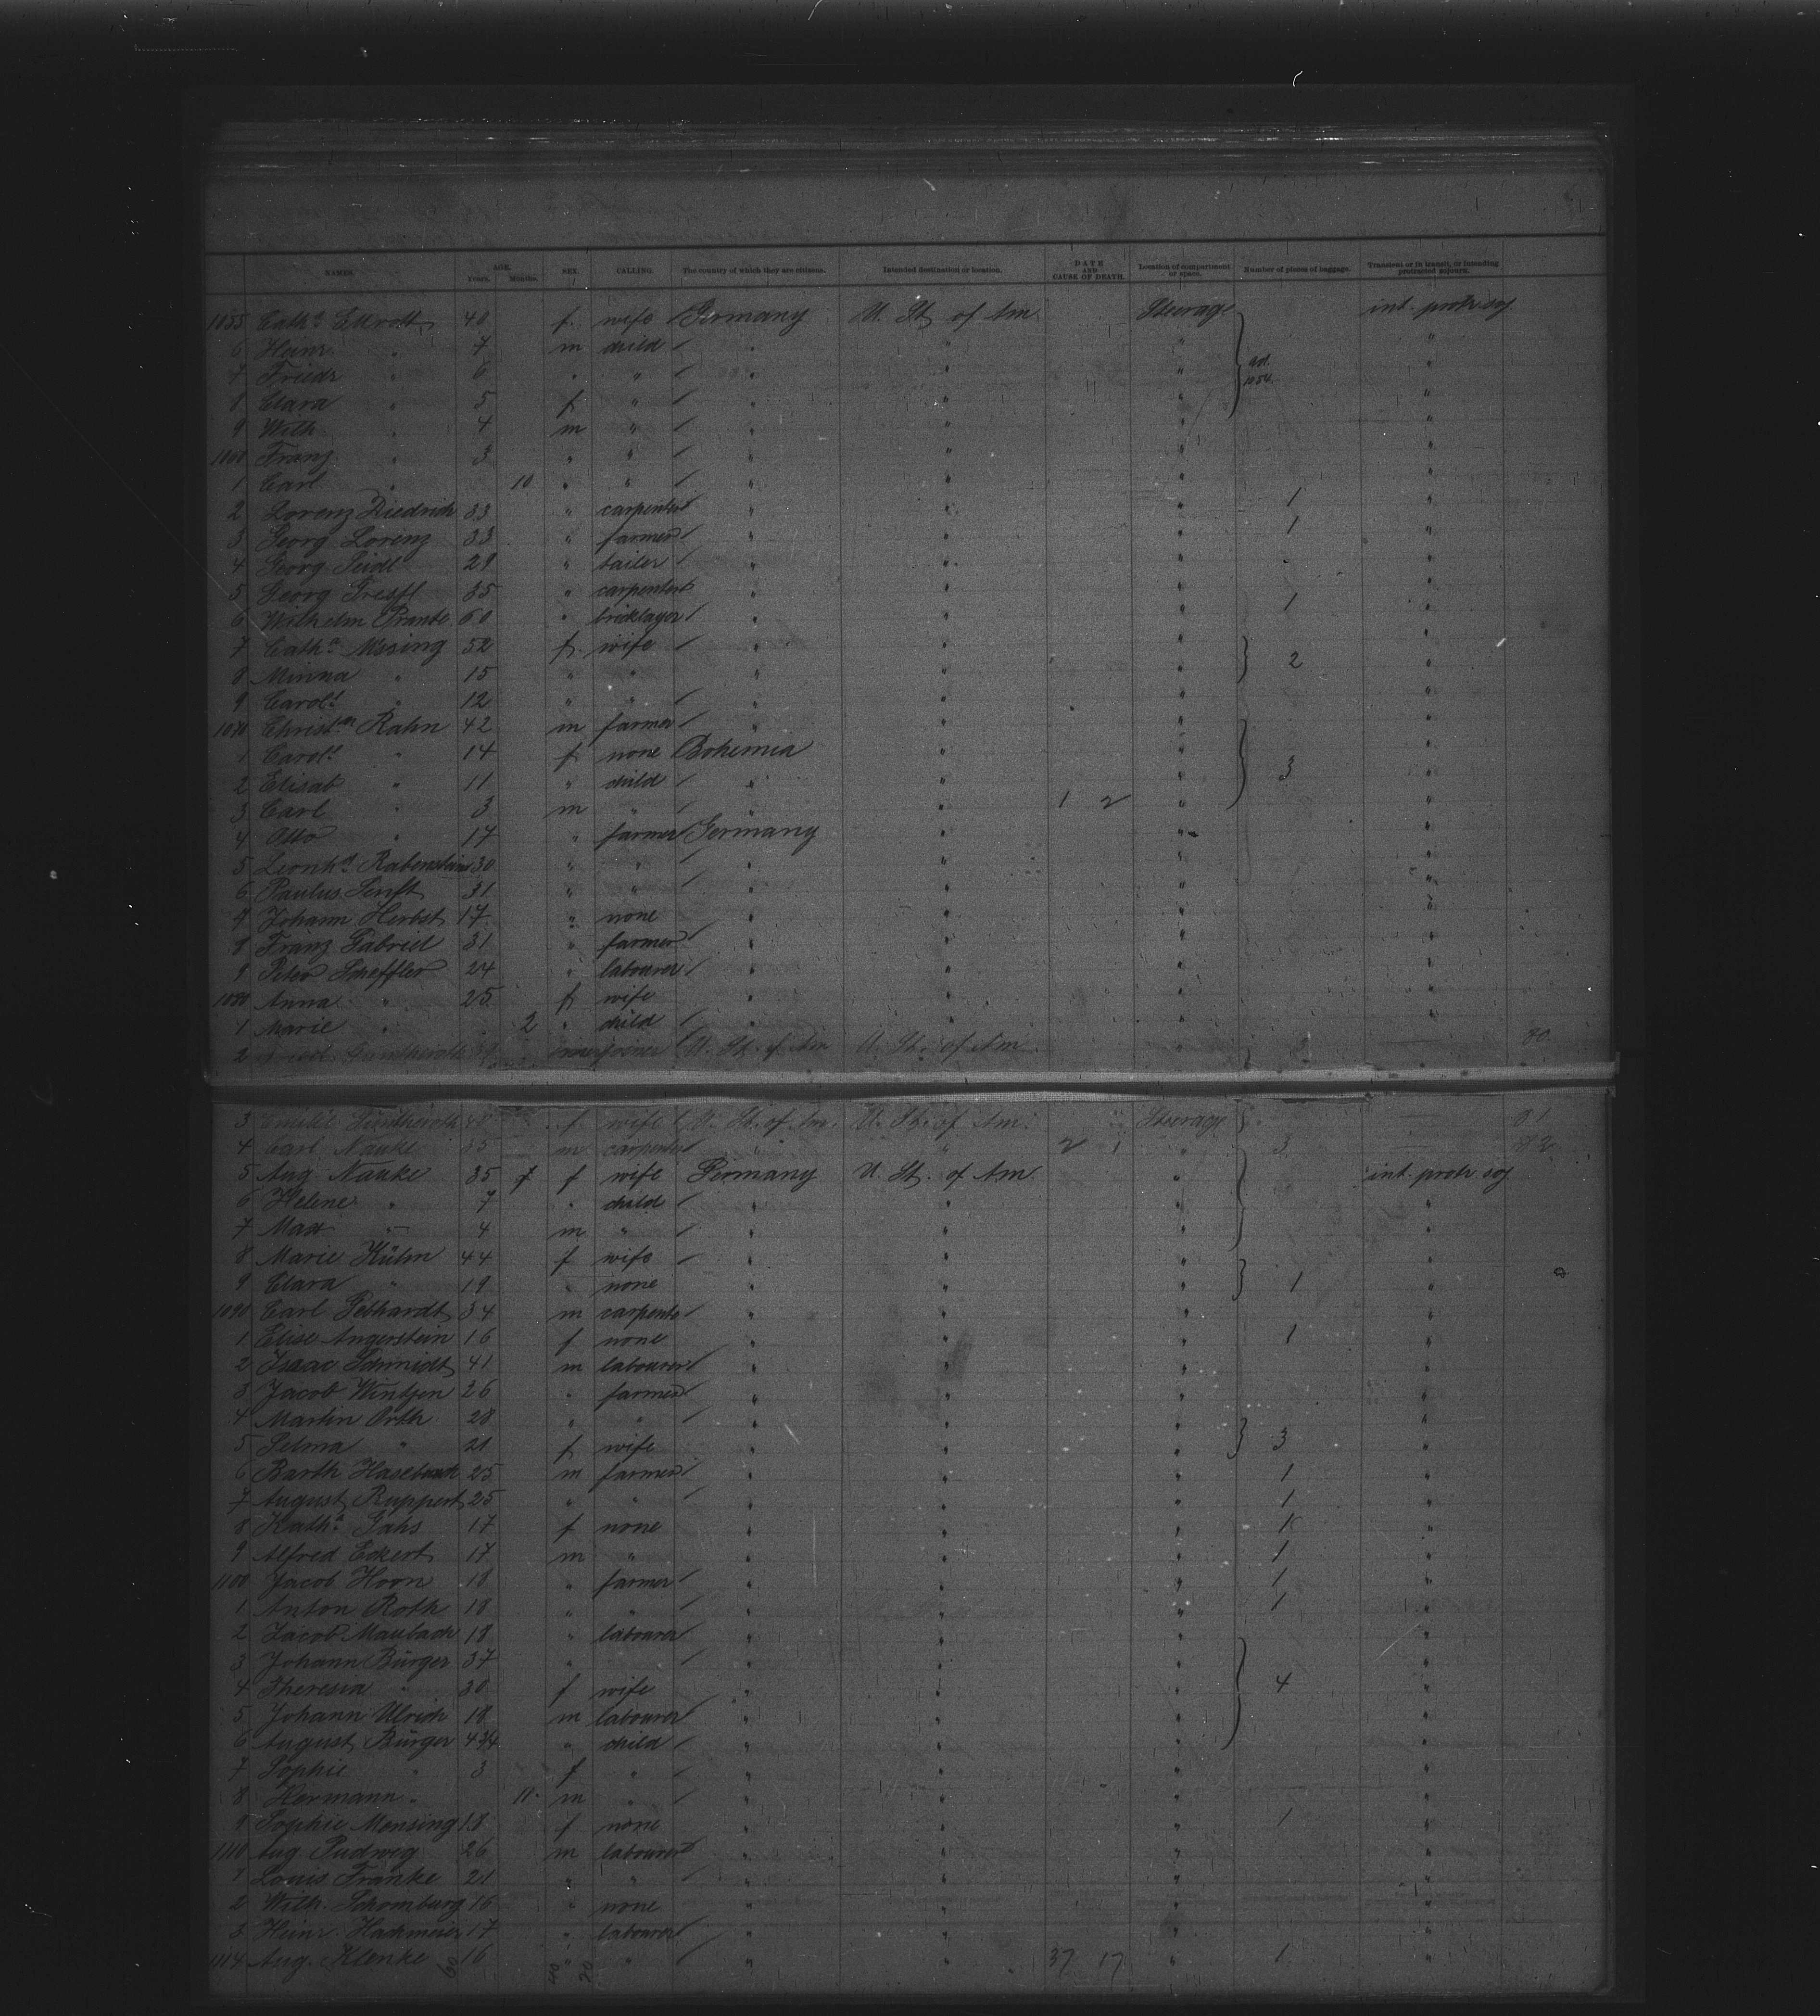 NAMES. AGE. Years. Months. SEX. CALLING. The country of which they are citizens. Intended destination or location. DATE AND CAUSE OF DEATH. Location of compartment or space. Number of pieces of baggage. Transient or in transit, or intending protracted sojourn.
1055 Cath.a Ellrott 40 f. wife Germany U. St. of Am. Steerage int. protr. soj
6 Heinr. " 7 m child " " " "
7 Friedr " 6 " " " " " ad. 1054 "
8 Clara " 5 f " " " " "
9 Wilh. " 4 m " " " " "
1060 Franz " 3 " " " " " "
1 Carl " 10 " " " " " "
2 Lorenz Diedrich 33 " carpenter " " " 1 "
3 Georg Lorenz 33 " farmer " " " 1 "
4 Georg Seidl 29 " tailer " " " "
5 Georg 35 " carpenter " " " "
6 Wilhelm Prante 60 " bricklayer " " " 1 "
7 Cath.a Missing 52 f. wife " " " "
8 Minna " 15 " " " " " 2 "
9 Carol.e " 12 " " " " " "
1070 Christ.an Rahn 42 m farmer " " " "
1 Carol.e " 14 f none Bohemia " " "
2 Elisab " 11 " child " " " 3 "
3 Carl " 3 m " " " 1 2 " "
4 Otto " 17 " farmer Germany " " "
5 Leonh.d Rabenstein 30 " " " " " "
6 Paulus Senft 31 " " " " " "
7 Johann Herbst 17 " none " " " "
8 Franz Gabriel 31 " farmer " " " "
9 Peter Scheffler 24 " labourer " " " "
1080 Anna " 25 f wife " " " "
1 Marie " 2 " child " " " "
2 joiner U. St. of Am U. St. of Am " 80
3 Emilie f wife U. St. of Am. U. St. of Am. Steerage 81
4 Carl Nauke 35 m carpenter " " 2 1 " 3 82
5 Aug Nauke 35 7 f wife Germany U. St. of Am. " int. protr soj
6 Helene " 7 " child " " " "
7 Max " 4 m " " " " "
8 Marie Kühn 44 f wife " " " "
9 Clara " 19 " none " " " 1 "
1090 Carl Gebhardt 34 m carpenter " " " "
1 Elise Angerstein 16 f none " " " 1 "
2 Isaac Schmidt 41 m labourer " " " "
3 Jacob Wintjen 26 " farmer " " " "
4 Martin Orth 28 " " " " " "
5 Selma " 21 f wife " " " 3 "
6 Barth 25 m farmer " " " 1 "
7 August Ruppert 25 " " " " " 1 "
8 Kath.a Jahs 17 f none " " " 1 "
9 Alfred Eckert 17 m " " " " 1 "
1100 Jacob Horn 18 " farmer " " " 1 "
1 Anton Roth 18 " " " " " 1 "
2 Jacob Maubach 18 " labourer " " " "
3 Johann Bürger 37 " " " " "
4 Theresia " 30 f wife " " " 4 "
5 Johann Ulrich 18 m labourer " " " "
6 August Bürger 4 " child " " " "
7 Sophie " 3 f " " " " "
8 Hermann " 11 m " " " " "
9 Sophie Mensing 18 f none " " " 1 "
1110 Aug Ludwig 26 m labourer " " " "
1 Louis Franke 21 " " " " " "
2 Wilh. Schomburg 16 " none " " " "
3 Heinr. Hachmeier 17 " labourer " " " "
1114 Aug. Klenke 16 " " " " 37 17 " 1 "